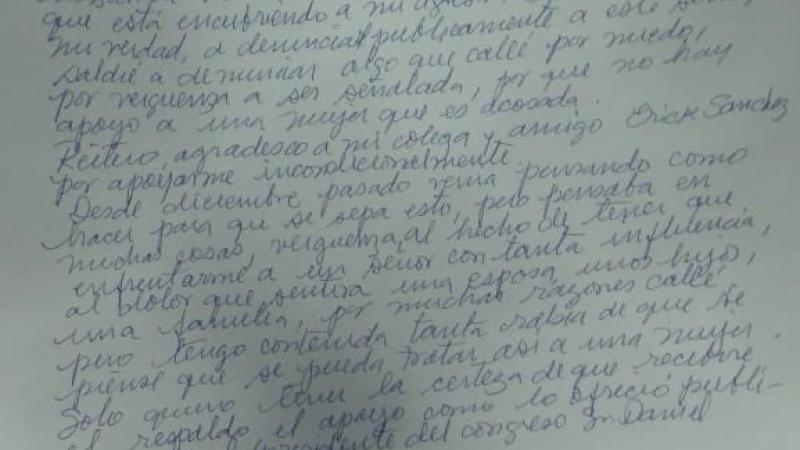 que está encubriendo a mi
mi verdad, a denunciar publicamente a este
saldré a denunciar algo que callé por miedo,
por verguenza a ser señalada, por que no hay
apoyo a una mujer que es acosada.
Reitero, agradesco a mi colega y amigo Erick Sanchez
por apoyarme incondicionalmente.
Desde diciembre pasado venia pensando como
hacer para que se sepa esto, pero pensaba en
muchas cosas, verguenza, al hecho de tener que
enfrentarme a un señor con tanta influencia,
al dolor que sentira una esposa, unos hijo,
una familia, por muchas razones callé
pero tengo contenida tanta rabia de que se
piense que se pueda tratar asi a una mujer.
Solo quiero tener la certeza de que recibire
el respaldo el apoyo como lo ofreció publi-
del congreso Sr. Daniel